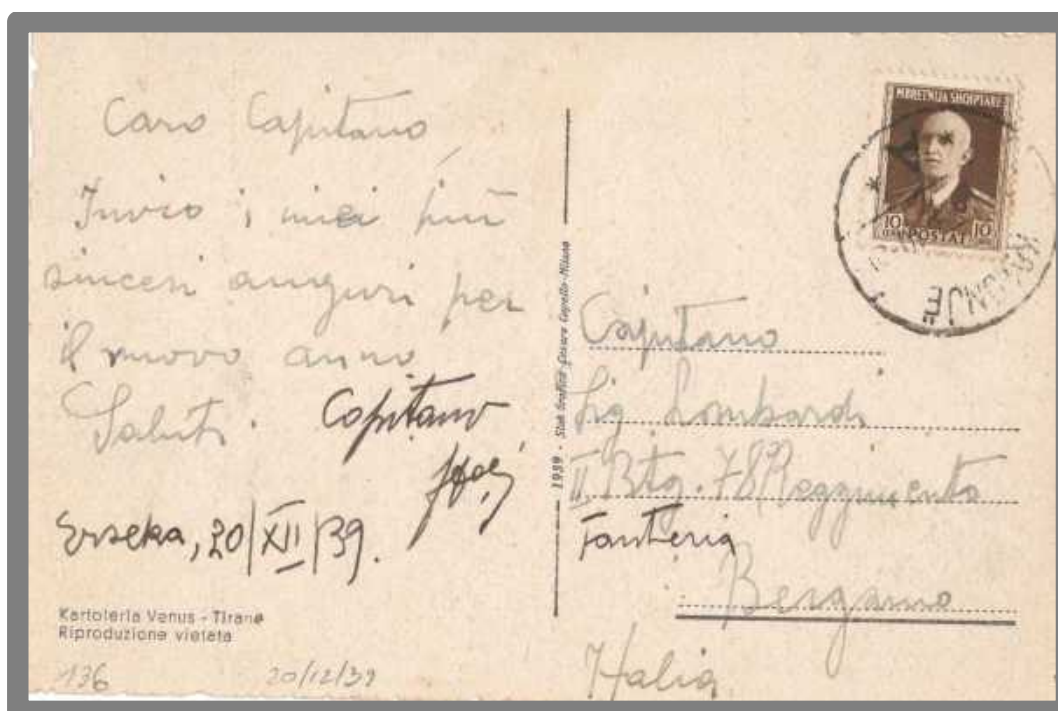 Caro Capitano
Invio i miei più
sinceri auguri per
il nuovo anno
Saluti.
Capitano
Erseka, 20/XII/39.
Kartoleria Venus - Tirane
Riproduzione vietata
136
20/12/39
1939 - Stab. Grafico Cesare Capello - Milano
MBRETNIJA SHQIPTARE
10 POSTAT 10
KOLONJE
Capitano
Sig Lombardi
II Btg. 78 Reggimento
Fanteria
Bergamo
Italia